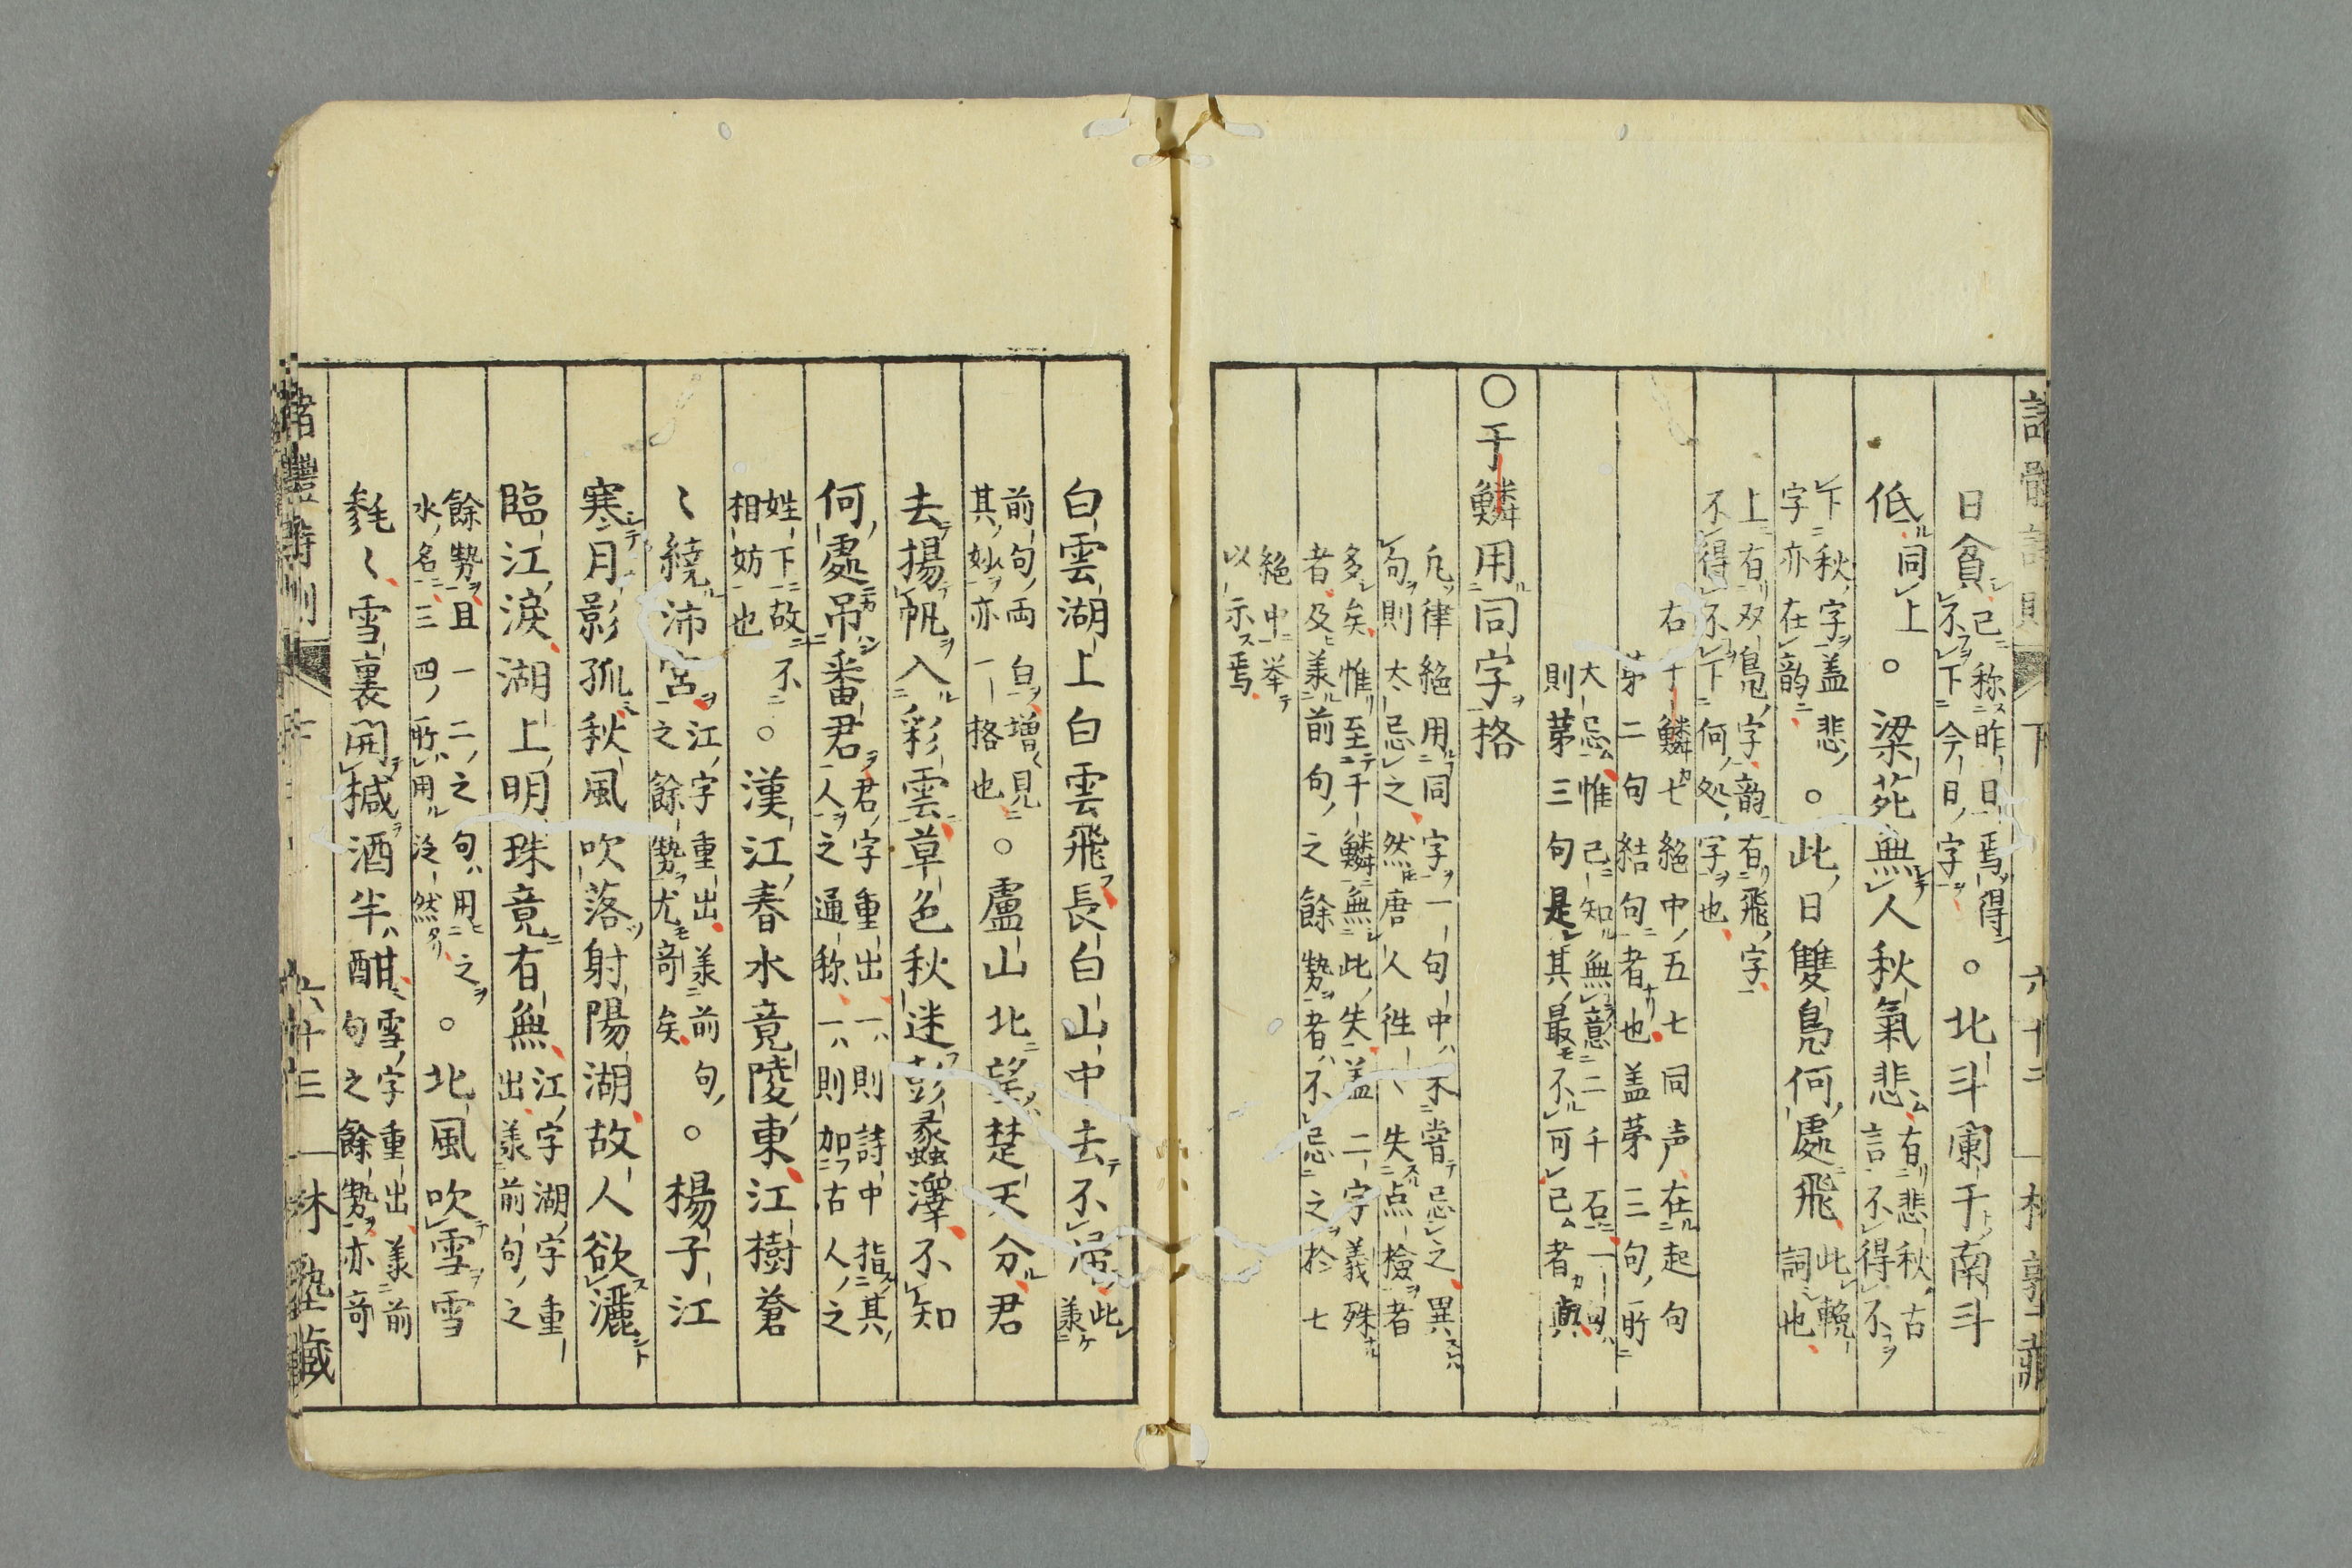 日貧已称昨日焉得
不下今日字
。北斗闌干南斗
低同上。梁苑無人秋氣悲
有悲秋古
言不得不
下秋字盖悲
字亦在韵
。此日雙鳧何處飛
此輓
詞也
上有双鳧字韵有飛字
不得不下何処字也
右于鱗七絶中五七同声在起句
茅二句結句者也盖茅三句所
大忌惟已知無意二千石一句
則茅三句是其最不可已者
〇于鱗用同字格
凡律絶用同字一句中不嘗忌之異
句則太忌之然唐人徃〻失点檢者
多矣惟至于鱗無此失盖二字義殊
者及羕前句之餘勢者不忌之於七
絶中挙
以示焉
白雲湖上白雲飛長白山中去不歸
此
羕
前句両白増見
其妙亦一格也
。盧山北望楚天分君
去揚帆入彩雲草色秋迷彭蠡澤不知
何處吊番君
君字重出一則詩中指其
人之通称一則加古人之
姓下故不
相妨也
。漢江春水竟陵東江樹蒼
〻繞沛宮
江字重出羕前句
之餘勢尤竒矣
。楊子江
寒月影孤秋風吹落射陽湖故人欲灑
臨江淚湖上明珠竟有無
江字湖字重
出羕前句之
餘勢且一二之句用之
水名三四所用泛然
。北風吹雪雪
毿〻雪裏開椷酒半酣
雪字重出羕前
句之餘勢亦竒
六十三